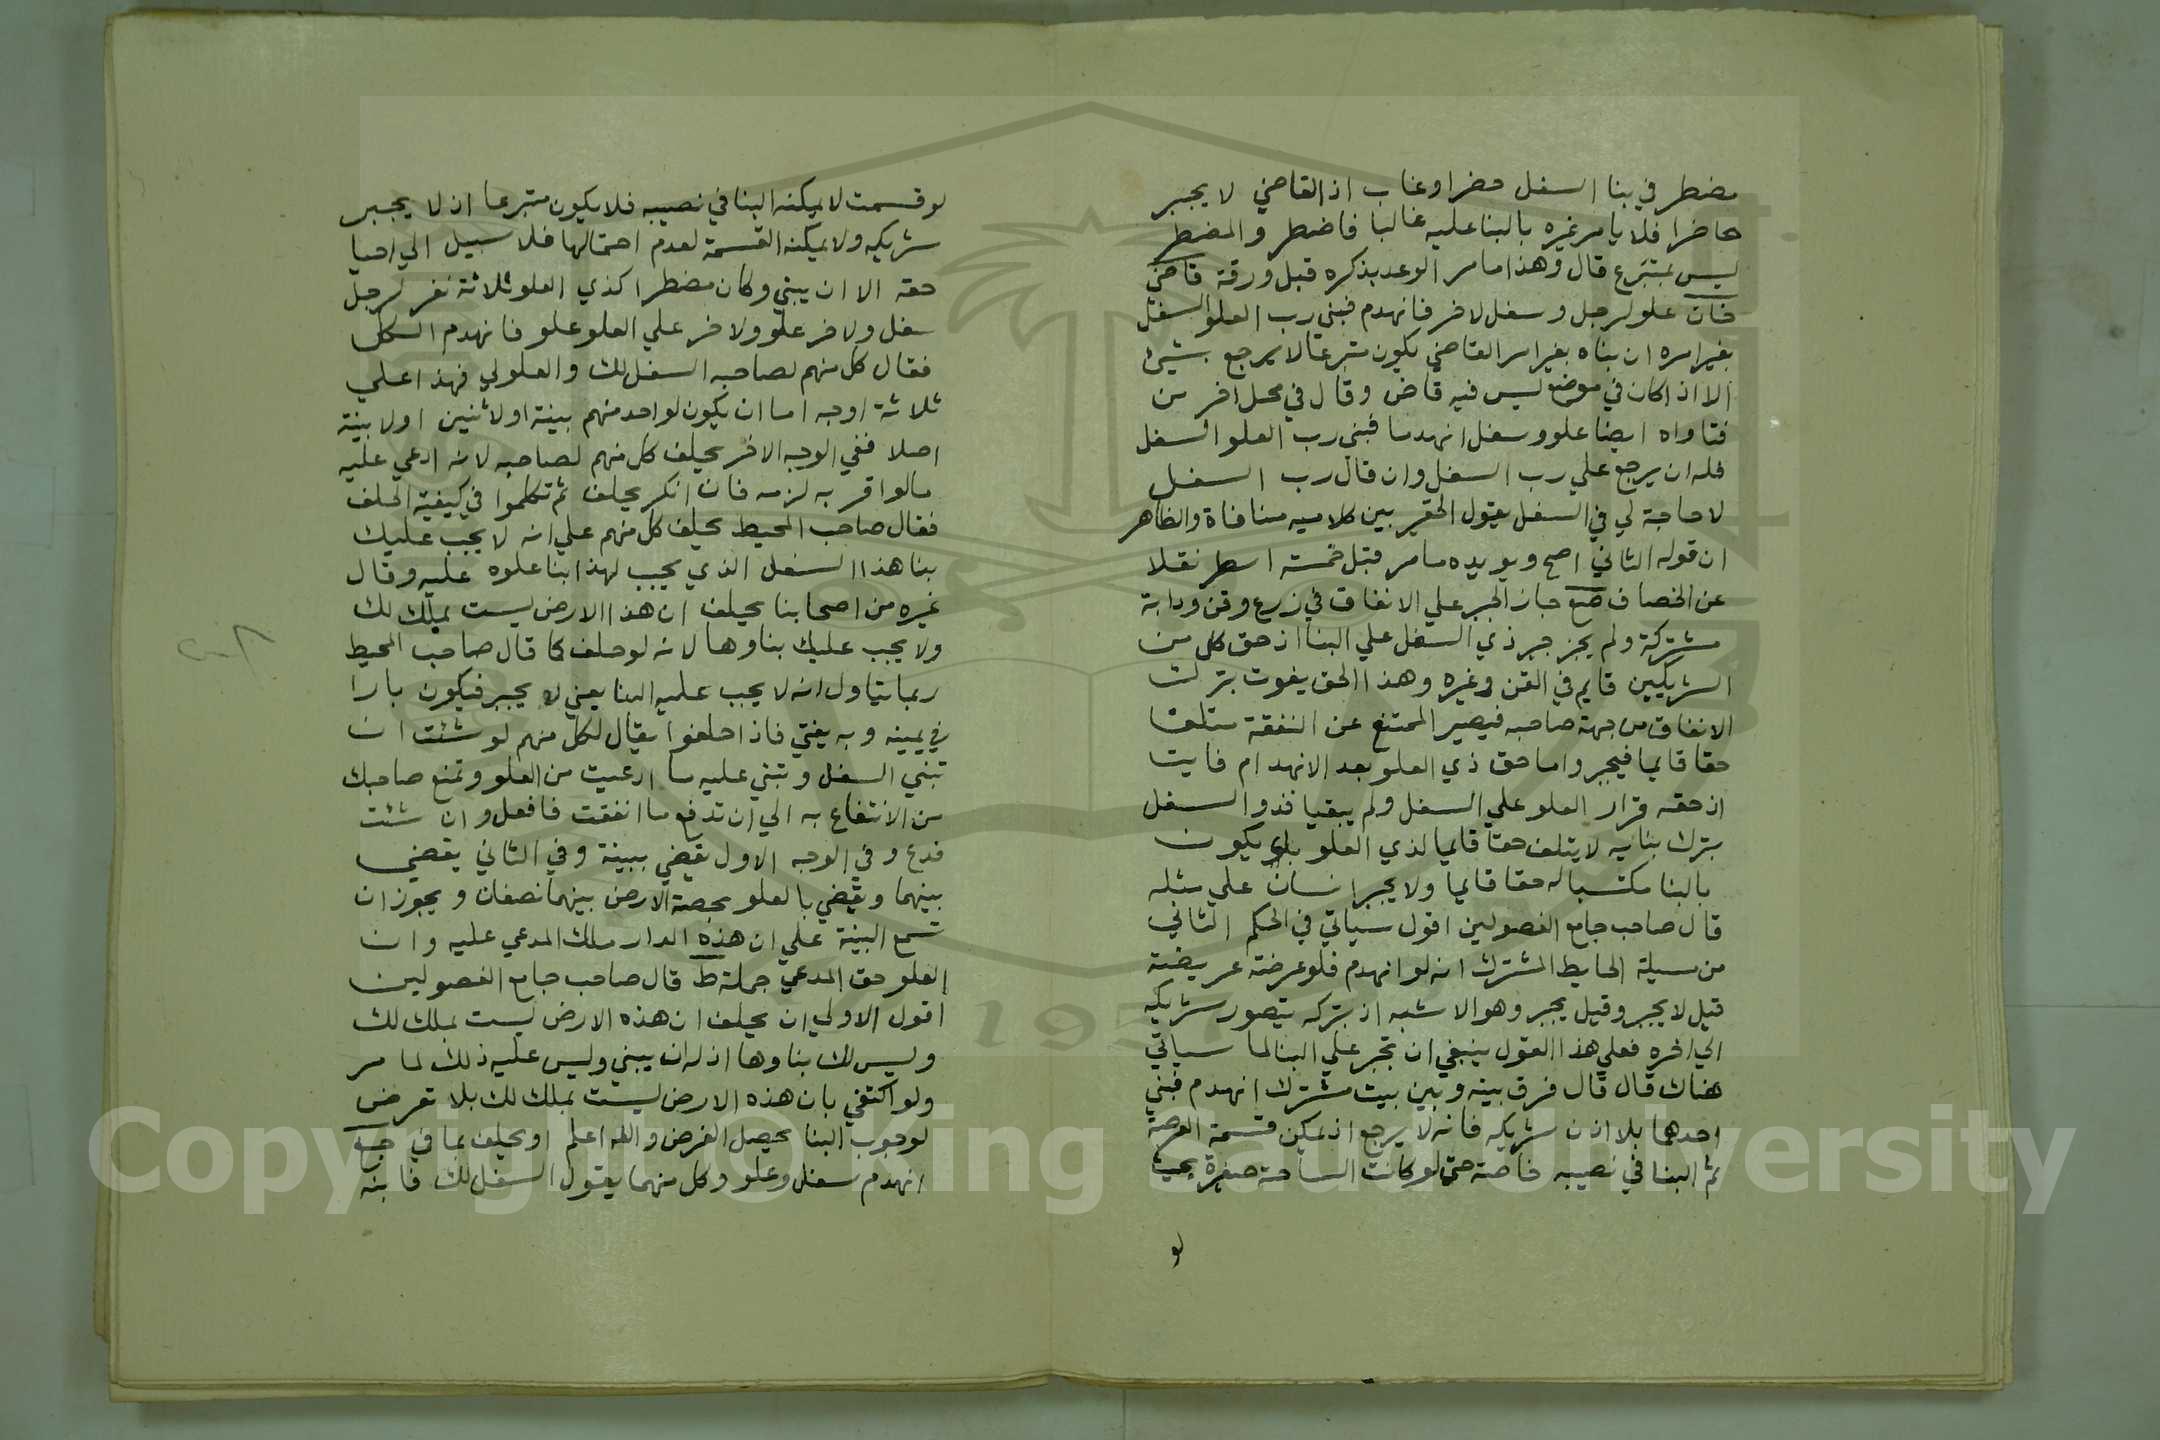 مضطر في بنا السفل حضرا وغاب اذ القاضي لا يجبر
حاضرا فلا يامر غيره بالبنا عليه غالبا فاضطر والمضطر
ليس بمتبرع قال وهذا ما مر الوعد بذكره قبل ورقة قاضي
خان علو لرجل وسفل لاخر فانهدم فبني رب العلو السفل
بغير امره ان بناه بغير امر القاضي يكون متبرعا لا يرجع بشيئ
الا اذا كان في موضع ليس فيه قاض وقال في محل اخر من
فتاواه ايضا علو وسفل انهدما فبني رب العلو السفل
فله ان يرجع علي رب السفل وان قال رب السفل
لا حاجة لي في السفل يقول الحقير بين كلاميه منافاة والظاهر
ان قوله الثاني اصح ويويده ما مر قبل خمسة اسطر نقلا
عن الخصاف صع جاز الجبر علي الانفاق في زرع وقن ودابة
مشتركة ولم يجز جبر ذي السفل علي البنا اذ حق كل من
الشريكين قايم في القن وغيره وهذا الحق يفوت بترك
الانفاق من جهة صاحبه فيصير الممتنع عن النفقة متلفا
حقا قايما فيجبر واما حق ذي العلو بعد الانهدام فايت
اذ حقه قرار العلو علي السفل ولم يبقيا فذو السفل
بترك بنايه لا يتلف حقا قايما لذي العلو بل يكون
بالبنا مكتسبا له حقا قايما ولا يجبر انسان علي مثله
قال صاحب جامع الفصولين اقول سياتي في الحكم الثاني
من مسيلة الحايط المشترك انه لو انهدم فلو عرضته عريضة
قيل لا يجبر وقيل يجبر وهو الاشبه اذ بتركه يتصور شريكه
الي اخره فعلي هذا القول ينبغي ان يجبر علي البنا لما سياتي
هناك قال قال فرق بينه وبين بيت مشترك انهدم فبني
احدهما بلا اذن شريكه فانه لا يرجع اذ يمكن قسمة العرصة
ثم البنا في نصيبه خاصة حتي لو كانت الساحة صغيرة بحيث
لو
لو قسمت لا يمكنه البنا في نصيبه فلا يكون متبرعا اذ لا يجبر
شريكه ولا يمكنه القسمة لعدم احتمالها فلا سبيل الي احيا
حقه الا ان يبني وكان مضطرا كذي العلو ثلاثة نفر لرجل
سفل ولاخر علو ولاخر علي العلو علو فانهدم الكل
فقال كل منهم لصاحبه السفل لك والعلو لي فهذا علي
ثلاثة اوجه اما ان يكون لواحد منهم بينة او لاثنين او لا بينة
اصلا ففي الوجه الاخر يحلف كل منهم لصاحبه لانه ادعي عليه
ما لو اقر به لزمه فان انكر يحلف ثم تكلموا في كيفية الحلف
فقال صاحب المحيط يحلف كل منهم علي انه لا يجب عليك
بنا هذا السفل الذي يجب لهذا بنا علوه عليه وقال
غيره من اصحابنا يحلف ان هذا الارض ليست بملك لك
ولا يجب عليك بناوها لانه لو حلف كما قال صاحب المحيط
ربما يتاول انه لا يجب عليه البنا يعني لا يجبر فيكون بارا
في يمينه وبه يفتي فاذا حلفوا يقال لكل منهم لو شئت ان
تبني السفل وتبني عليه ما ادعيت من العلو وتمنع صاحبك
من الانتفاع به الي ان تدفع ما انفقت فافعل وان شئت
فدع وفي الوجه الاول يقضي ببينة وفي الثاني يقضي
بينهما ويقضي بالعلو بحصة الارض بينهما نصفان ويجوز ان
تسمع البينة علي ان هذه الدار ملك المدعي عليه وان
العلو حق المدعي جملة ط قال صاحب جامع الفصولين
اقول الاولي ان يحلف ان هذه الارض ليست بملك لك
وليس لك بناوها اذ له ان يبني وليس عليه ذلك لما مر
ولو اكتفي بان هذه الارض ليست بملك لك بلا تعرض
لوجوب البنا يحصل الغرض والله اعلم او يحلف بما في
انهدم سفل وعلو وكل منهما يقول السفل لك فابنه
Copyright © King Saud University
1957